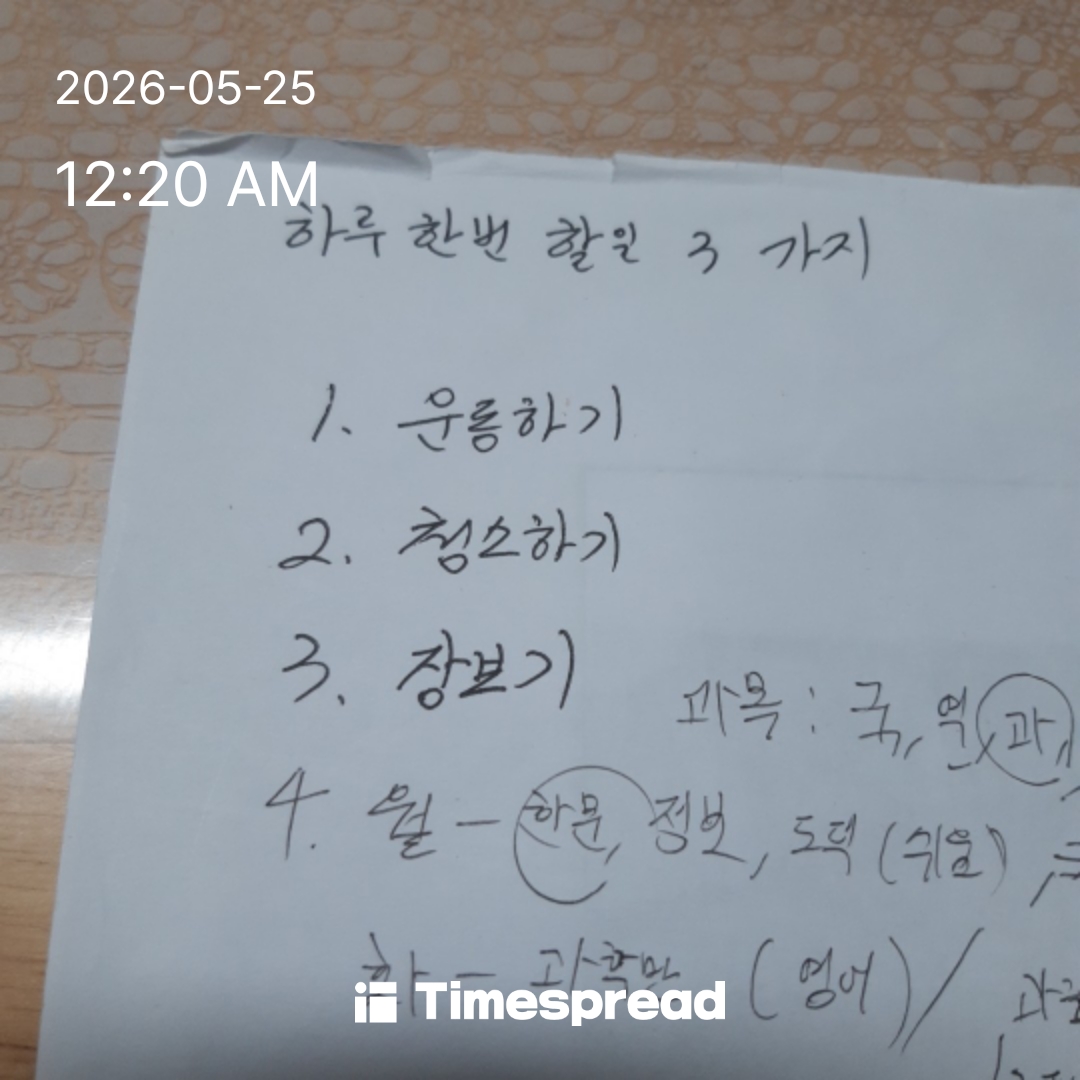 2026-05-25
12:20 AM
하루 한번 할일 3 가지
1. 운동하기
2. 청소하기
3. 장보기
과목 : 국, 역, 과,
4. 월 - 한문, 정보, 도덕 (쉬움)
화 - 과학만 (영어) /
Timespread